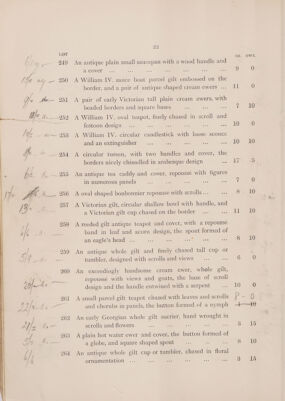 22
LOT oz. dwt.
249 An antique plain small saucepan with a wood handle and
a cover ... 9 0
250 A William IV. sauce boat parcel gilt embossed on the
border, and a pair of antique shaped cream ewers ... 11 0
251 A pair of early Victorian tall plain cream ewers, with
beaded borders and square bases ... 7 10
252 A William IV. oval teapot, finely chased in scroll and
festoon design ... 10 0
253 A William IV. circular candlestick with loose sconce
and an extinguisher ... 10 10
254 A circular tureen, with two handles and cover, the
borders nicely chiselled in arabesque design ... 17 5
255 An antique tea caddy and cover, repoussé with figures
in numerous panels ... 7 0
256 A oval shaped bonbonnier repoussé with scrolls ... 8 10
257 A Victorian gilt, circular shallow bowl with handle, and
a Victorian gilt cup chased on the border ... 11 10
258 A reeded gilt antique teapot and cover, with a repoussé
band in leaf and acorn design, the spout formed of
an eagle's head ... 8 10
259 An antique whole gilt and freely chased tall cup or
tumbler, designed with scrolls and views ... 6 0
260 An exceedingly handsome cream ewer, whole gilt,
repoussé with views and goats, the base of scroll
design and the handle entwined with a serpent ... 10 0
261 A small parcel gilt teapot chased with leaves and scrolls
and cherubs in panels, the button formed of a nymph
262 An early Georgian whole gilt sucrier, hand wrought in
scrolls and flowers ... 3 15
263 A plain hot water ewer and cover, the button formed of
a globe, and square shaped spout ... 8 10
264 An antique whole gilt cup or tumbler, chased in floral
ornamentation ... 3 15